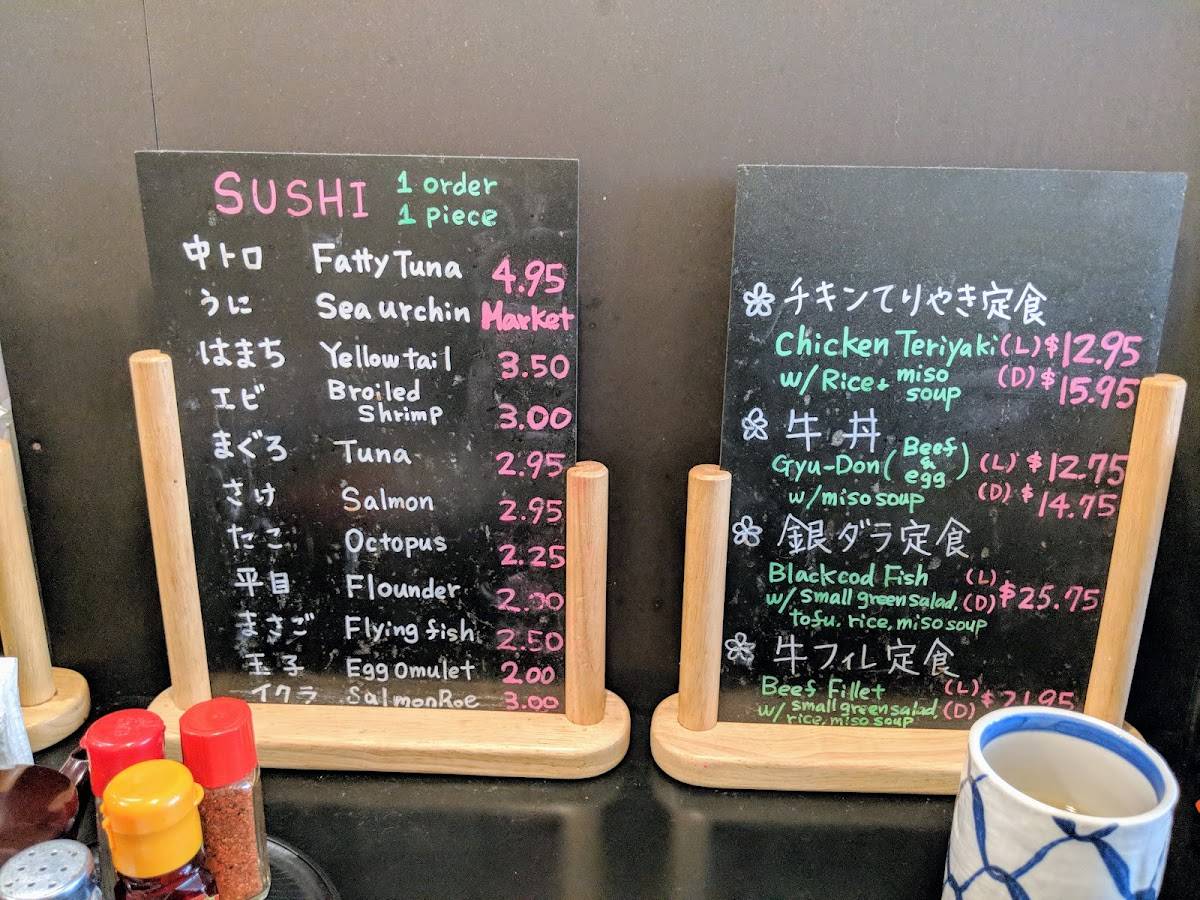 SUSHI 1 order
1 piece
中トロ Fatty Tuna 4.95
うに Sea urchin Market
はまち Yellow tail 3.50
エビ Broiled Shrimp 3.00
まぐろ Tuna 2.95
さけ Salmon 2.95
たこ Octopus 2.25
平目 Flounder 2.00
まさご Flying fish 2.50
玉子 Egg omulet 2.00
イクラ Salmon Roe 3.00
チキンてりやき定食
Chicken Teriyaki (L) $12.95
w/ Rice + miso soup (D) $15.95
牛丼
Gyu-Don (Beef & egg) (L) $12.75
w/ miso soup (D) $14.75
銀ダラ定食
Blackcod Fish (L)
w/ small green salad, (D) $25.75
tofu, rice, miso soup
牛フィレ定食
Beef Fillet (L)
w/ small green salad, (D) $21.95
rice, miso soup